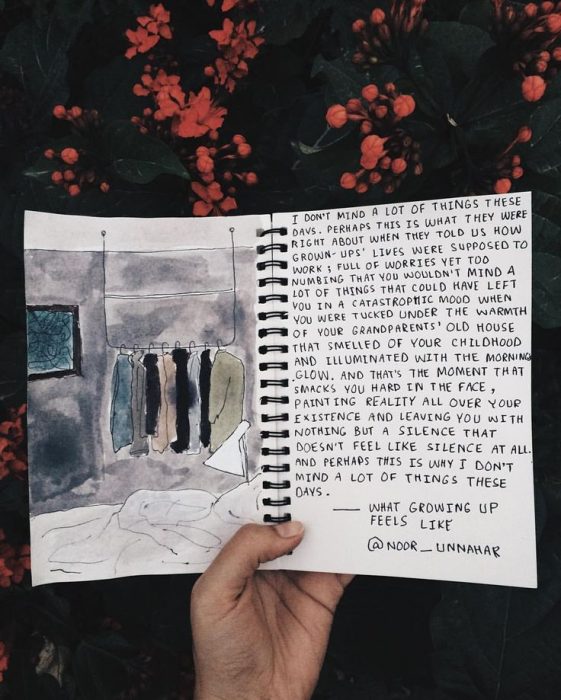 I DON'T MIND A LOT OF THINGS THESE
DAYS. PERHAPS THIS IS WHAT THEY WERE
RIGHT ABOUT WHEN THEY TOLD US HOW
GROWN-UPS' LIVES WERE SUPPOSED TO
WORK; FULL OF WORRIES YET TOO
NUMBING THAT YOU WOULDN'T MIND A
LOT OF THINGS THAT COULD HAVE LEFT
YOU IN A CATASTROPHIC MOOD WHEN
YOU WERE TUCKED UNDER THE WARMTH
OF YOUR GRANDPARENTS' OLD HOUSE
THAT SMELLED OF YOUR CHILDHOOD
AND ILLUMINATED WITH THE MORNING
GLOW. AND THAT'S THE MOMENT THAT
SMACKS YOU HARD IN THE FACE,
PAINTING REALITY ALL OVER YOUR
EXISTENCE AND LEAVING YOU WITH
NOTHING BUT A SILENCE THAT
DOESN'T FEEL LIKE SILENCE AT ALL.
AND PERHAPS THIS IS WHY I DON'T
MIND A LOT OF THINGS THESE
DAYS.
— WHAT GROWING UP
FEELS LIKE
@NOOR_UNNAHAR